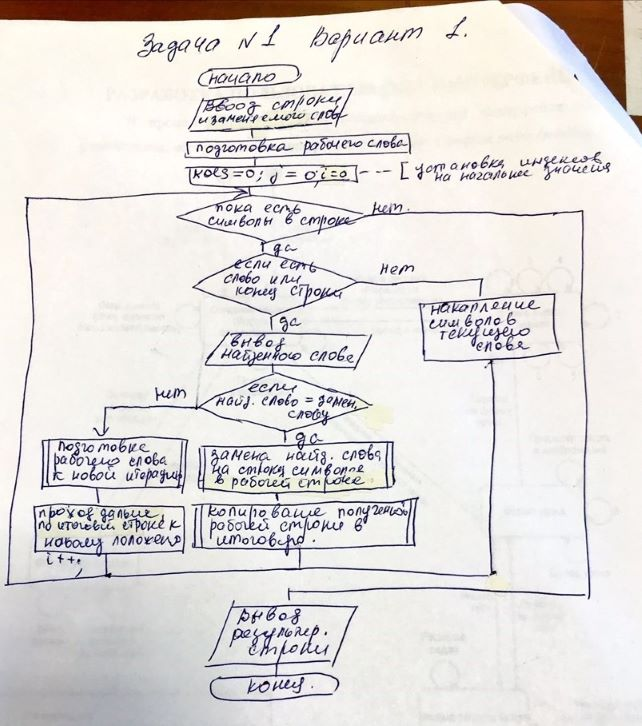 Задача №1 Вариант 1.
начало
Ввод строки
и заменяемого слова
подготовка рабочего слова
j = 0; i=0
[ установка индексов
на начальные значения
пока есть
символы в строке
нет.
да
если есть
слово или
конец строки
нет
да
накапление
символов
текущего
слова
вывод
найденного слова
если
найд. слово = замен.
слову
нет
да
подготовка
рабочего слова
к новой итерации
замена найд. слова
на строку символов
в рабочей строке
проход дальше
по итоговой строке к
новому положению
i++;
копирование полученной
рабочей строки в
итоговую.
вывод
результир.
строки
конец.